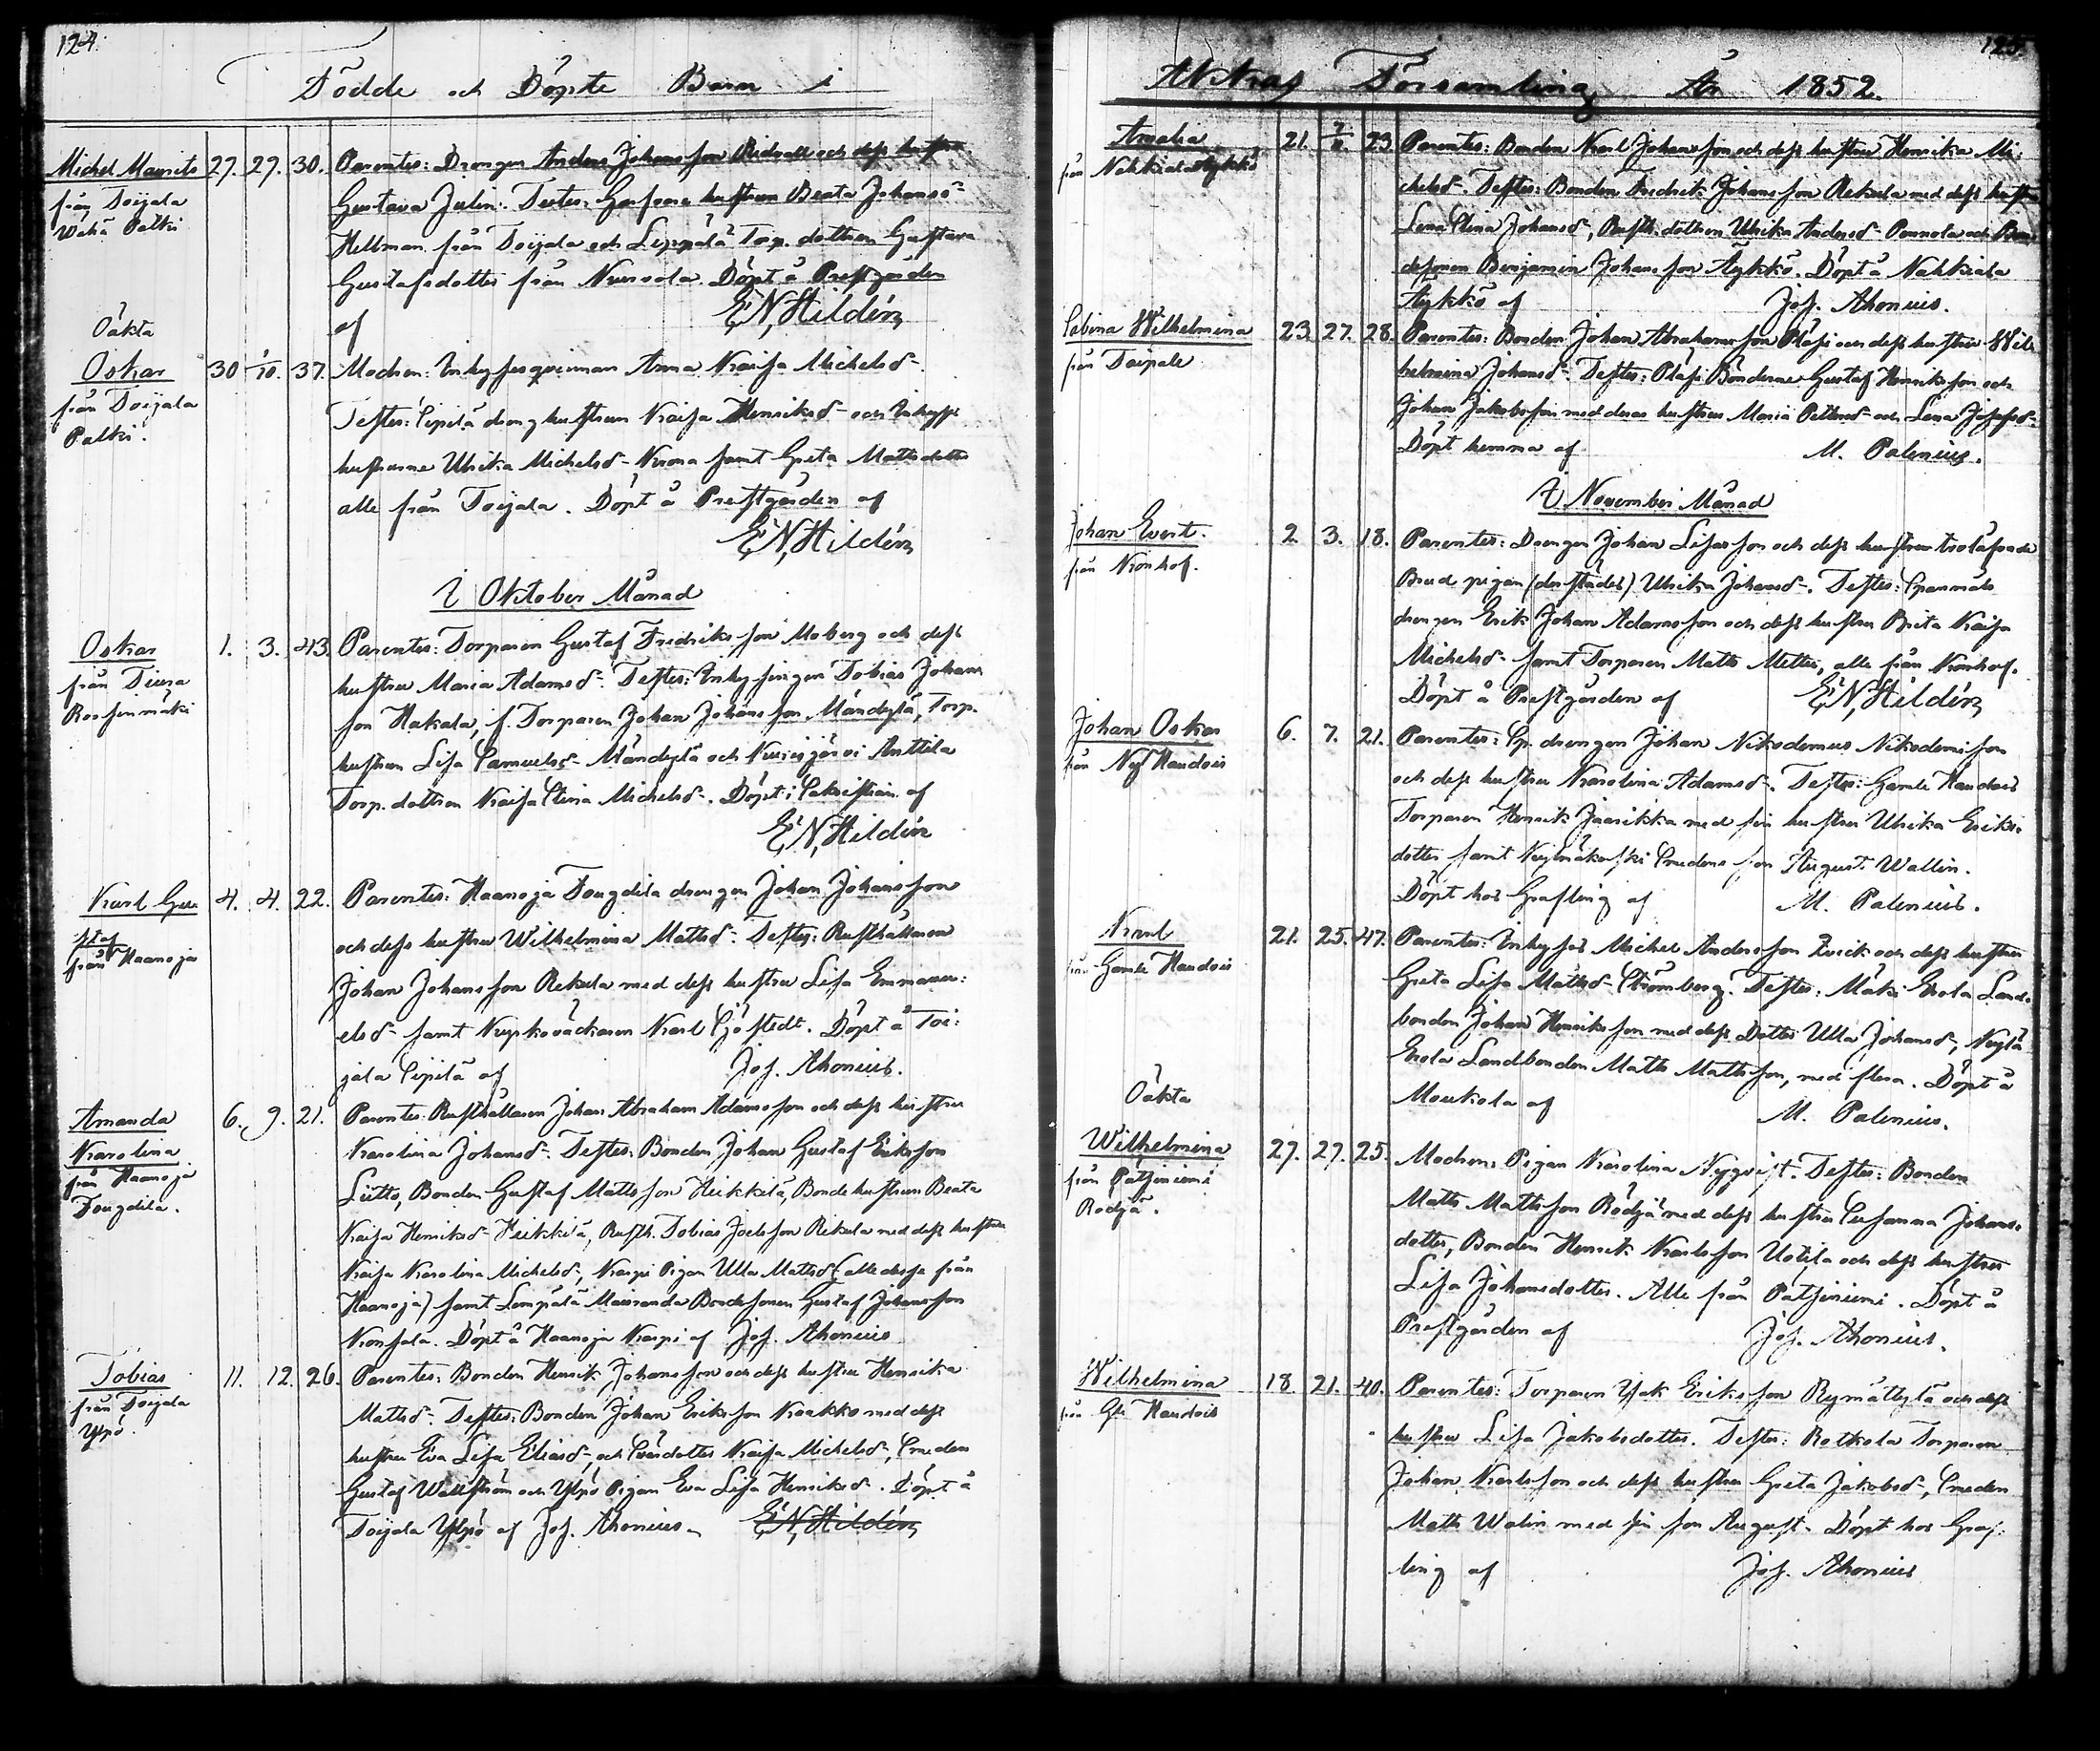 124.
Födde och Döpte Barn i
Michel Maurits 27. 27. 30. Parentes: Drengen Anders Johansson Widvall och dess hustru
från Toijala Gustava Julin. Testes: Hustrun Beata Johansd-
Wähä Paltti Hellman från Toijala och Lippälä Torp. dottren Gustava
Gustafsdotter från Nursola. Döpt å Prestgården
af E, N, Hildén
Oäkta
Oskar 30 1/10. 37. Modren: Inhysesqvinnan Anna Kaisa Michelsd-
från Toijala Testes: Sipilä dreng hustrun Kaisa Henriksd- och Inhyses
Paltti. hustrurne Ulrika Michelsd- samt Greta Mattsdotter
alle från Toijala. Döpt å Prestgården af
E, N, Hildén
I Oktober Månad
Oskar 1. 3. 43. Parentes: Torparen Gustaf Fredriksson Moberg och dess
från hustru Maria Adamsd-. Testes: Inhysingen Tobias Johans
son Hakala, f. Torparen Johan Johansson Mändylä, Torp.
hustrun Lisa Samuelsd- Mändylä och Kurisjärvi Anttila
Torp. dottren Kaisa Stina Michelsd-. Döpt i Sakristian af
E, N, Hildén
Karl Gu 4. 4. 22. Parentes: Haanoja Fougdila drengen Johan Johansson
staf och dess hustru Wilhelmina Mattsd-. Testes: Rusthållaren
från Haanoja Johan Johansson Rekula med dess hustru Lisa Emmanu:
elsd- samt Kyrkoväcktaren Karl Sjöstedt. Döpt å Toi:
jala Sipilä af Jos. Ahonius.
Amanda 6. 9. 21. Parentes: Rusthållaren Johan Abraham Adamsson och dess hustru
Karolina Karolina Johansd-. Testes: Bonden Johan Gustaf Eriksson
från Haanoja Liitto, Bonden Gustaf Mattsson Heikkilä, Bonde hustrun Beata
Fougdila. Kaisa Henriksd- Heikkilä, Rusth. Tobias Joelsson Rekula med dess hustru
Kaisa Karolina Michelsd-, Karpi Pigan Ulla Mattsd- (alle dessa från
Haanoja) samt Lempälä Bondesonen Gustaf Johansson
Döpt å Haanoja Karpi af Jos. Ahonius
Tobias 11. 12. 26. Parentes: Bonden Henrik Johansson och dess hustru Henrika
från Toijala Mattsd-. Testes: Bonden Johan Eriksson Kaakko med dess
Ylpö. hustru Eva Lisa Eliasd-, och Kaisa Michelsd-, Smeden
Gustaf Wallström och Ylpö Pigan Eva Lisa Henriksd-. Döpt å
Toijala Ylpö af Jos. Ahonius. E, N, Hildén
125.
Akkas Församling År 1852.
Amalia 21. 7/11. 23. Parentes: Bonden Karl Johansson och dess hustru Henrika Mi:
från Nahkiala Äykkö chelsd-. Testes: Bonden Fredrik Johansson Rekula med dess hustru
Lena Stina Johansd-, Rusth. dottren Ulrika Andersd- Pennola och Bon
desonen Benjamin Johansson Äykkö. Döpt å Nahkiala
Äykkö af Jos. Ahonius.
Sabina Wilhelmina 23. 27. 28. Parentes: Bonden Johan Abrahamsson Pläsi och dess hustru Wil
från Taipale helmina Johansd-. Testes: Pläsi Bönderne Gustaf Henriksson och
Johan Jakobsson med deras hustrur Maria och Lena Josefsd-.
Döpt hemma af M. Palenius.
I November Månad
Johan Evert. 2. 3. 18. Parentes: Drengen Johan Lisasson och dess hustru trolofvade
från Kronhof. Brud pigan (derstädes) Ulrika Johansd-. Testes: Spanmåls
drengen Erik Johan Adamsson och dess hustru Brita Kaisa
Michelsd- samt Torparen Matts Mattsi, alle från Kronhof.
Döpt å Prestgården af E, N, Hildén
Johan Oskar 6. 7. 21. Parentes: Sp. drengen Johan Nikodemus Nikodemisson
från Ny Haudois och dess hustru Karolina Adamsd-. Testes: Gamle Haudois
Torparen Henrik Jaarikka med sin hustru Ulrika Eriks-
dotter samt Smedens son August Wallin.
Döpt hos Grafling af M. Palenius.
Karl 21. 25. 47. Parentes: Inhyses Michel Andersson Qvick och dess hustru
från Gamle Haudois Greta Lisa Mattsd- Strömberg. Testes: Mäki Erola Land-
bonden Johan Henriksson med dess Dotter Ulla Johansd-, Kylä
Erola Landbonden Matts Mattsson, med flera. Döpt å
Moukola af M. Palenius.
Oäkta
Wilhelmina 27. 27. 25. Modren: Pigan Karolina Nyqvist. Testes: Bonden
från Patjiniemi Matts Mattsson Rödjä med dess hustru Susanna Johans-
Rodjä. dotter, Bonden Henrik Karlsson Uotila och dess hustru
Lisa Johansdotter. Alle från Patjiniemi. Döpt å
Prestgården af Jos. Ahonius.
Wilhelmina 18. 21. 40. Parentes: Torparen Isak Eriksson Rymättylä och dess
från Gle Haudois hustru Lisa Jakobsdotter. Testes: Rotkola Torparen
Johan Karlsson och dess hustru Greta Jakobsd-, Smeden
Matts Walin med sin son August. Döpt hos Graf:
ling af Jos. Ahonius